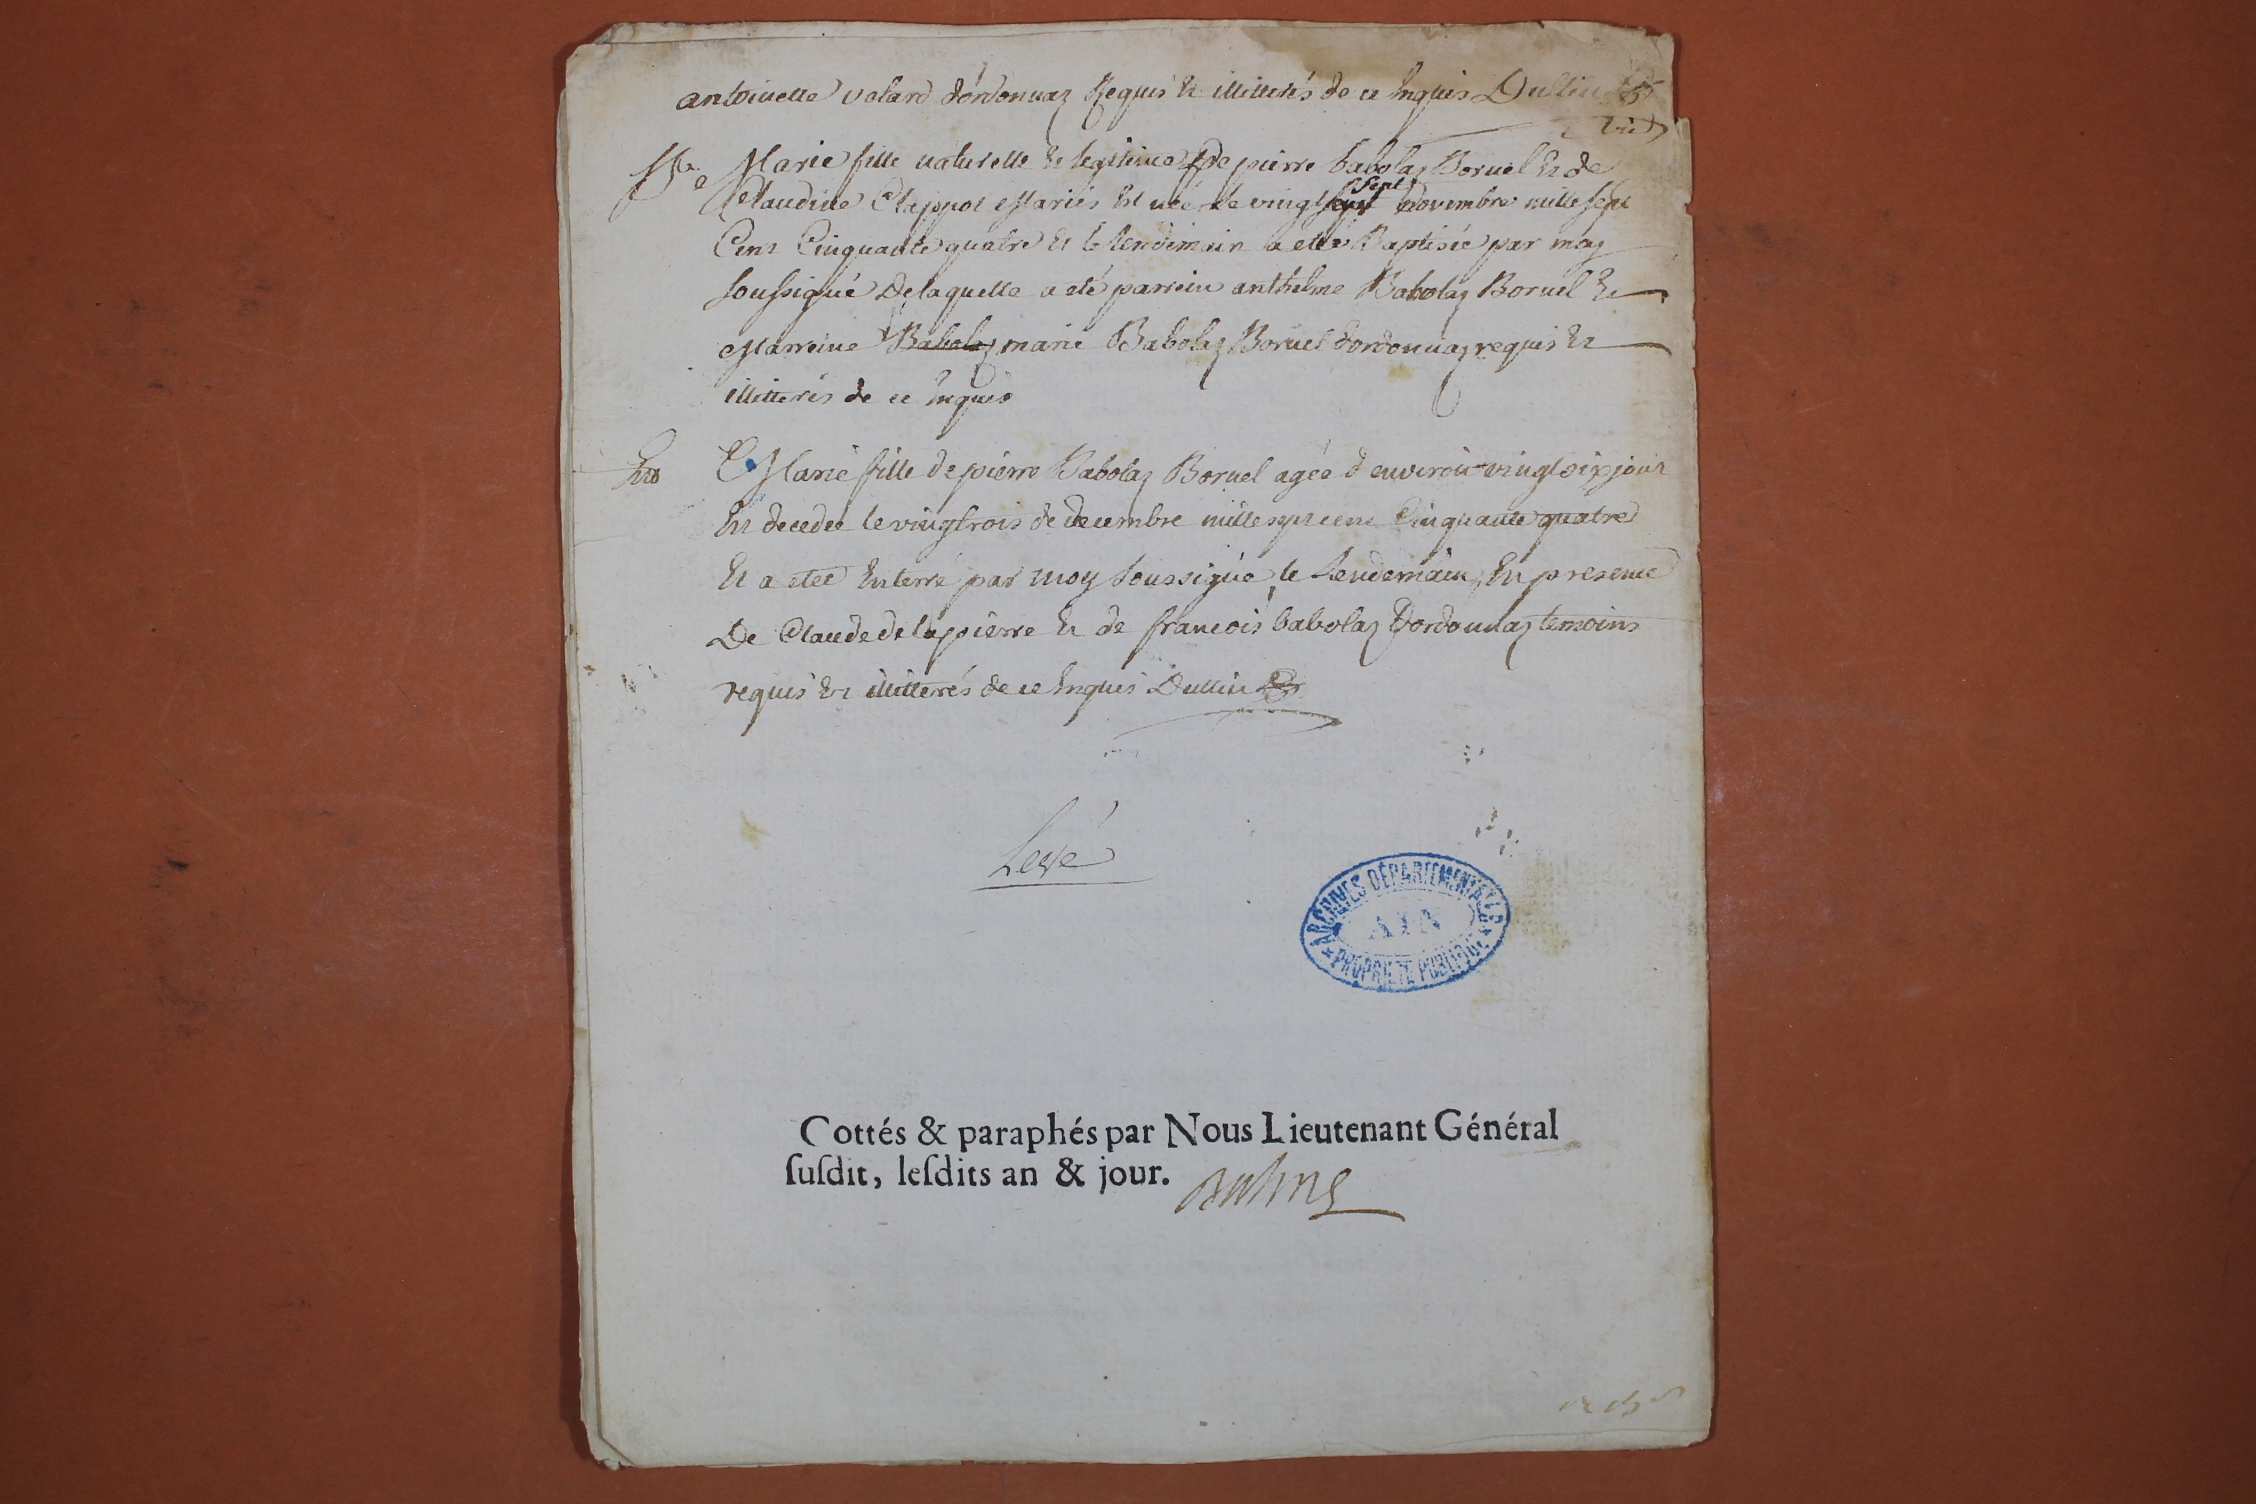 antoinette volard d'ordonnaz Requis et illitterés de ce Enquis Dullin
Marie fille naturelle et legitime de pierre babolaz Boruel et de
Claudine Clappot Mariés est née le vingt sept novembre mille sept
Cent Cinquante quatre et le lendemain a eté Baptisée par moy
soussigné De laquelle a eté parrein anthelme Babolaz Boruel et
Marreine Babolaz marie Babolaz Boruel d'ordonnaz requis et
illitterés de ce Enquis
Marie fille de pierre Babolaz Boruel agée d'environ vingt six jours
Est decedée le vingtrois de decembre mille sept cent Cinquante quatre
Et a eteé Enterré par moy soussigné le lendemain, En presence
De Claude delapierre et de francois babolaz d'ordonnaz temoins
requis et illitterés de ce Enquis Dullin
Levé
ARCHIVES DÉPARTEMENTALES
AIN
PROPRIÉTÉ PUBLIQUE
Cottés & paraphés par Nous Lieutenant Général
ſuſdit, leſdits an & jour.